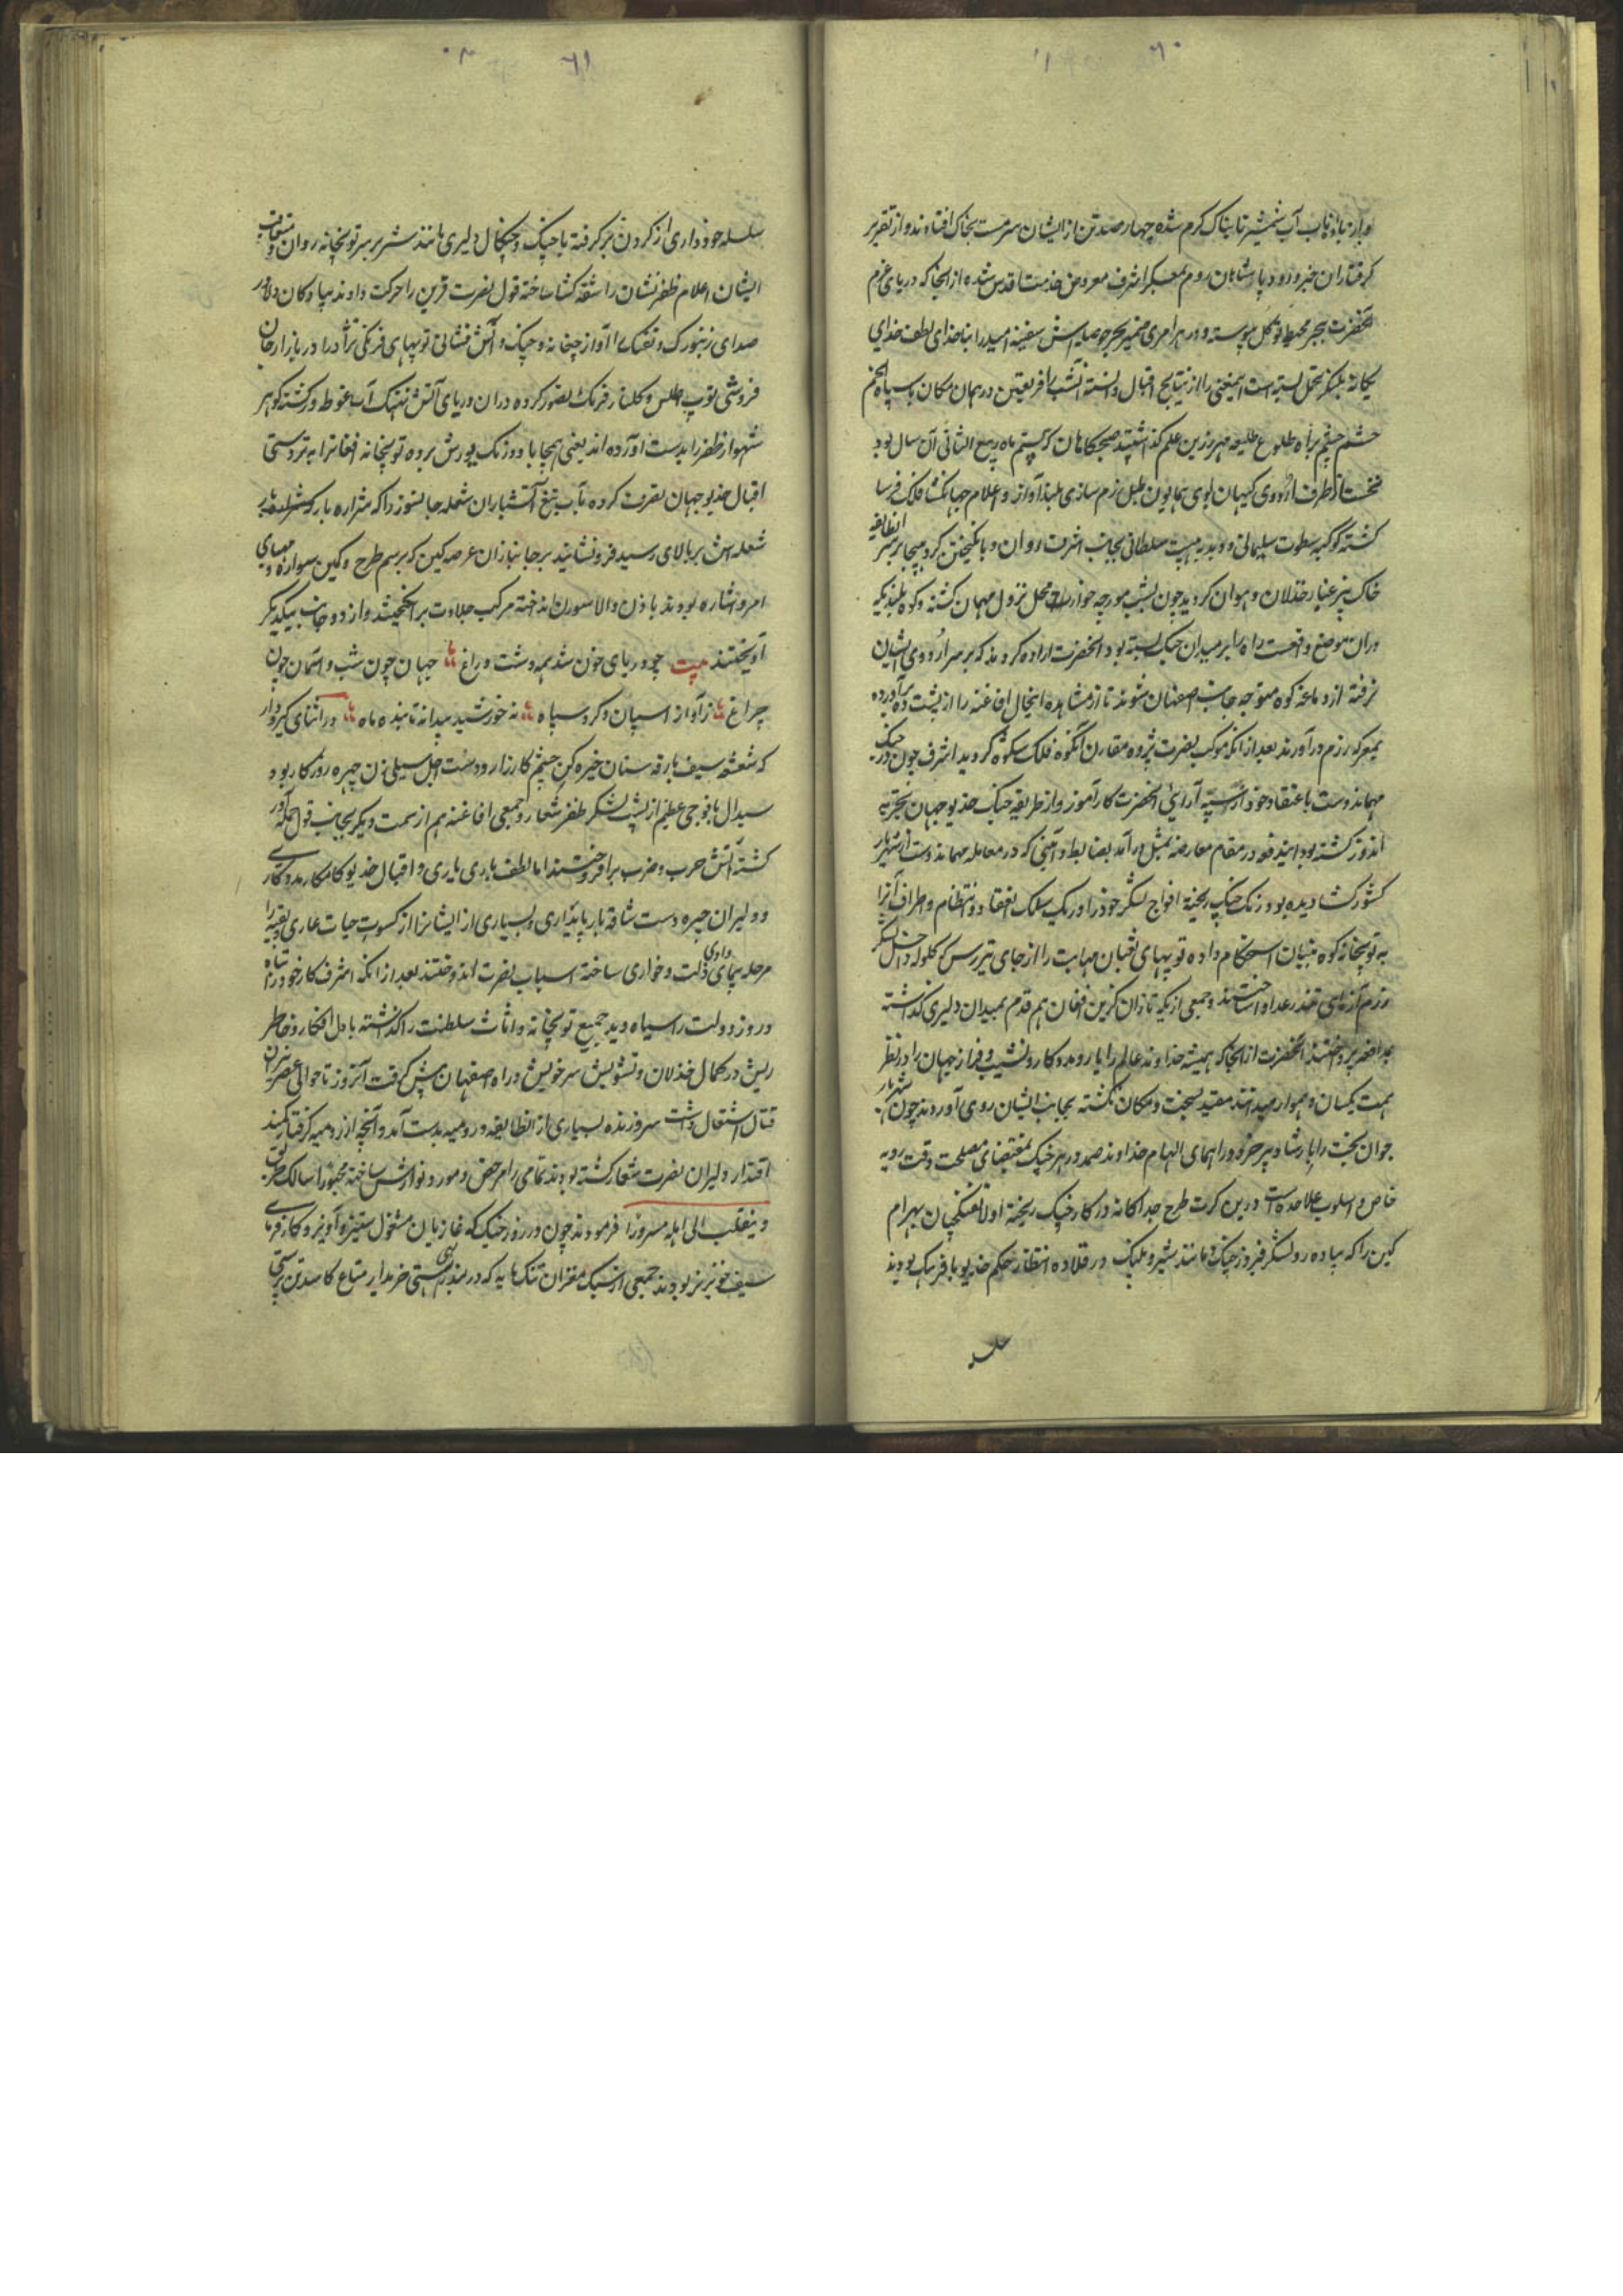 ٦٠
وبارنها و ناب آب شمشیر تابناک کرم شده چهارصد تن از ایشان سرمست بخاک افتادند و از تقریر
کرفتاران خبر ورود پاشاهان روم بمعسکر اشرف معروض خدمت اقدس شده از انجا که دریای عزم
آنحضرت ببحر محیط توکل پیوسته و در هر امری سفینه امید را بناخدای لطف خدای
یکانه بلنکر تحمل بسته است اینمعنی را از نتایج اقبال دانسته آنشب را فریقین در همان مکان با سپاه انجم
حشم چشم براه طلوع طلیعه مهر زرین علم کذاشتند صبحکاهان که بیستم ماه ربیع الثانی آن سال بود
نخست از طرف اردوی کیهان پوی همایون طبل رزم سازی بلند آواز و اعلام جهانکشا فلک فرسا
کشته کوکبه سطوت سلیمانی و دبدبه هیبت سلطانی بجانب اشرف روان و بانکیختن کرد هیجا بر سر انطایفه
خاک بیز غبار خذلان و هوان کردید چون بشب مورچه خوار محل نزول مهمان کشته و کوه بلندیکه
دران موضع واقعست راه را بر میدان جنک بسته بود آنحضرت اراده کردند که بر سر اردوی ایشان
نرفته از دماغه کوه متوجه جانب اصفهان شوند تا از مشاهده اینحال افاغنه را از پشت ده برآورده
بمعرکه رزم درآورند بعد از انکه موکب نصرت پژوه مقارن آنکوه فلک شکوه کردید اشرف چون در جنک
مهماندوست باعتقاد خود از سپه آرائی آنحضرت کارآموز و از طریقه جنک خدیو جهان تجربه
اندوز کشته بود اینهم خود در مقام معارضه بمثل درآمد بضابطه و آیینی که در معامله مهماندوست از شهریار
کشور کشا دیده بود رنک جنک ریخته افواج لشکر خود را در یک سلک انعقاد و انتظام و اطراف آنرا
به توپخانه کوه بنیان استحکام داده توپهای ثعبان مهابت را از جای تیررس کلوله داخل لشکر
رزم آزمای تندر عدو انداختند و جمعی از یکه تازان کزین افغان هم قدم بمیدان دلیری کذاشته
بمدافعه پرداختند آنحضرت از انجا که همیشه خداوند عالم را یار و مددکار و نشیب و فراز جهان را در نظر
همت یکسان و هموار میدانند مقید بسخت و مکان نکشته بجانب ایشان روی آوردند چون شهریار
جوان بخت را بارشاد پیر خرد و راهنمای الهام خداوند صمد در هر جنک بمقتضای مصلحت وقت رویه
خاص و اسلوب علاحده است درین کرت طرح جداکانه در کار جنک ریخته اولا تفنکچیان بهرام
کین را که پیاده رو لشکر فیروز جنک و مانند شیر و پلنک در قلاده انتظار حکم خدیو بافرهنک بودند
سلسله
٦١
سلسله خودداری از کردن برکرفته با چنک و چنکال دلیری مانند شرر بر سر توپخانه روان و متعاقب
ایشان اعلام ظفر نشان را شقه کشا ساخته قول نصرت قرین را حرکت دادند پیادکان دلاور
صدای زنبورک و تفنک را آواز چغانه و چنک و آتش فشانی توپهای فرنکی نژاد را در بازار جان
فروشی توپ اطلس و کلنار فرنک تصور کرده دران دریای آتش نهنک آب غوطه ور کشته کوهر
شهوار ظفر را بدست آورده اند یعنی همجا با دورنک یورش برده توپخانه افغانرا بتردستی
اقبال خدیو جهان تصرف کرده بآب تیغ آتشباران شعله جانسوز را که شراره بار کشته
شعله اش بر بالای رسید فرو نشانیدند بر جانبازان عرصه کین که برسم طرح و کمین سواره مهیای
امر و اشاره بودند باذن والا سورن انداخته مرکب جلادت برانکیختند و از دو جانب بیکدیکر
آویختند بیت چو دریای خون شد همه دشت و راغ جهان چون شب و اسمان چون
چراغ ز آواز اسپان و کرد سپاه نه خورشید پیدا نه تابنده ماه در اثنای کیرودار
که شعشعه سیف بارقه سنان خیره کن چشم کارزار و دست اجل سیلی زن چهره روزکار بود
سیدال با فوجی عظیم از پشت لشکر ظفر شعار و جمعی افاغنه هم از سمت دیکر بجانب قول حمله آور
کشته آتش حرب و ضرب برافروختند اما لطف باری یاری و اقبال خدیو کامکار مددکاری
و دلیران چیره دست شاقه بار پایداری و بسیاری از ایشانرا از کسوت حیات عاری و بقیه را
مرحله پیمای وادی ذلت و خواری ساخته اسباب نصرت اندوختند بعد از انکه اشرف کار خود را تباه
و روز دولت را سیاه دید جمیع توپخانه و اثاث سلطنت را کذاشته با دل افکار و خاطر
ریش در کمال خذلان و تشویش سر خویش و راه اصفهان پیش کرفت آنروز تا حوالی عصر نیران
قتال اشتعال داشت سر و زنده بسیاری از انطایفه و رومیه بدست آمد و آنچه از رومیه کرفتار کمند
اقتدار دلیران نصرت شعار کشته بودند تمامی را مرخص و مورد نوازش ساخته مجبورا سالک طریق
و ینقلب الی اهله مسرورا فرمودند چون در روز جنک که غازیان مشغول ستیز و آویز و کارفرمای
سیف خونریز بودند جمعی از سبک مغزان تنک مایه که در بندر هستی خریدار متاع کاسد تن پرستی